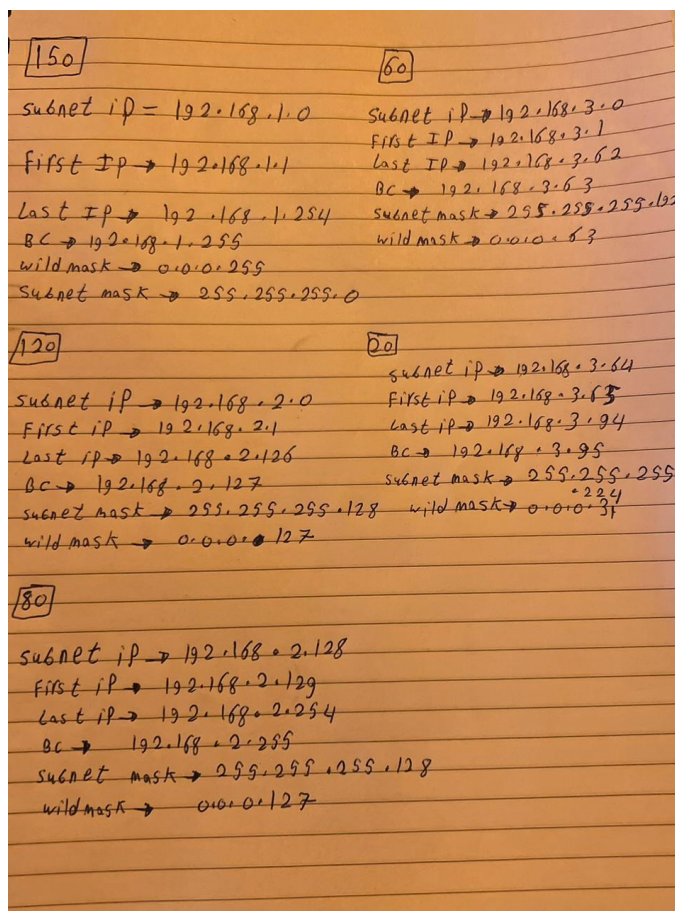 150
subnet ip = 192.168.1.0
First Ip → 192.168.1.1
Last Ip → 192.168.1.254
BC → 192.168.1.255
wild mask → 0.0.0.255
Subnet mask → 255.255.255.0
60
subnet ip → 192.168.3.0
First IP → 192.168.3.1
Last IP → 192.168.3.62
BC → 192.168.3.63
subnet mask → 255.255.255.192
wild mask → 0.0.0.63
120
subnet ip → 192.168.2.0
First ip → 192.168.2.1
Last ip → 192.168.2.126
BC → 192.168.2.127
subnet mask → 255.255.255.128
wild mask → 0.0.0.127
20
subnet ip → 192.168.3.64
First ip → 192.168.3.65
Last ip → 192.168.3.94
BC → 192.168.3.95
subnet mask → 255.255.255
.224
wild mask → 0.0.0.31
80
subnet ip → 192.168.2.128
First ip → 192.168.2.129
Last ip → 192.168.2.254
BC → 192.168.2.255
subnet mask → 255.255.255.128
wild mask → 0.0.0.127